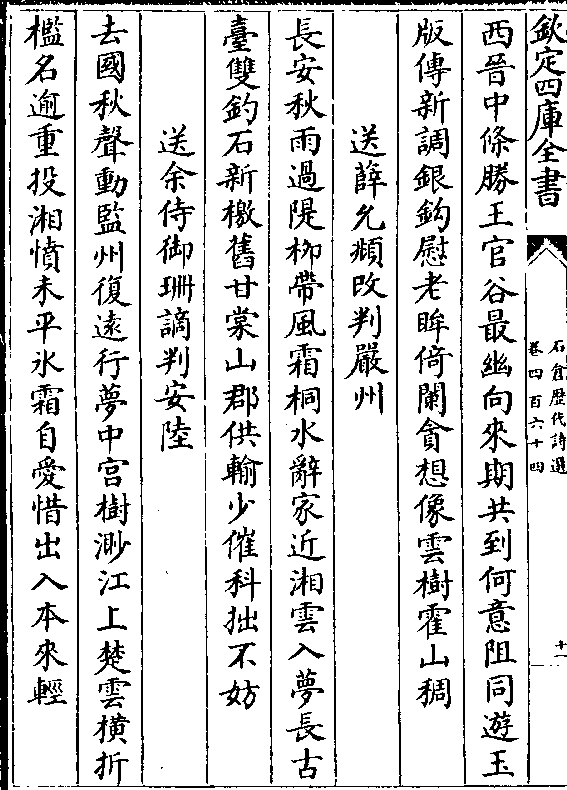 欽定四庫全書
石倉歷代詩選
卷四百六十四
十一
西晉中條勝王官谷最幽向來期共到何意阻同遊玉
版傳新調銀鈎慰老眸倚闌貪想像雲樹霍山稠
送薛允頫改判嚴州
長安秋雨過隄柳帶風霜桐水辭家近湘雲入夢長古
臺雙釣石新檄舊甘棠山郡供輸少催科拙不妨
送余侍御珊謫判安陸
去國秋聲動監州復遠行夢中宫樹渺江上楚雲橫折
檻名逾重投湘憤未平氷霜自愛惜出入本來輕